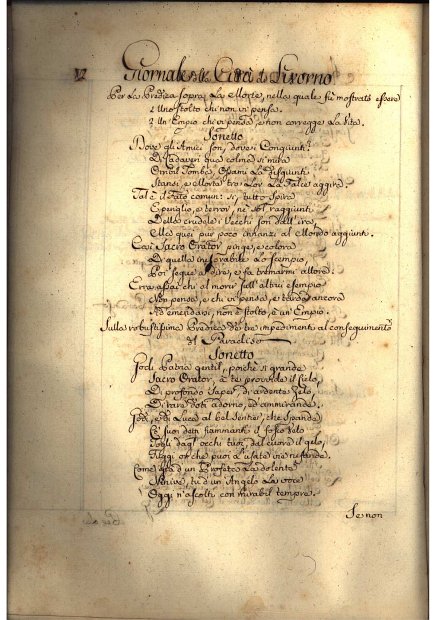 VI Giornale della Città di Livorno
Per La Predica sopra La Morte, nella quale fù mostrato essere
1 Uno stolto chi non vi pensa.
2 Un Empio chi vi pensa, e non corregge La Vita.
Sonetto
Dove gli Amici son, dove i Congiunti?
Di Cadaveri qua colma si mira
Ossami La Disgiunti
Stansi, e Morte tra Lor La Falce aggira.
Tal è il Fato comun: sì, tutto spira
e terror, nè sol raggiunti
Della crudele i Vecchi son dall'ira
Ma quei pur poco innanzi al Mondo aggiunti.
Così Sacro Orator pinge, e colora
Di quella inesorabile Lo scempio,
Poi segue a dire, e fa tremarmi allora:
Erra assai chi al morir sull'altrui esempio
Non pensa, e chi vi pensa, e tarda ancora
Ad emendarsi, non è stolto, è un Empio.
Sulla robustissima Predica dei tre impedimenti al conseguimento
del Paradiso
Sonetto
Godi Patria gentil, poichè sì grande
Sacro Orator, a te provvide il Cielo,
Di profondo saper, di ardente Zelo,
Di rare doti adorno, ed ammirande.
e di Luce al bel sentier, che spande
Co' suoi detti fiammanti, il fosco velo
Togli dagl'occhi tuoi, dal cuore il gelo,
Fuggi or che puoi L'usate vie nefande.
Come già d'un Profeta La dolente
Ninive, tu d'un Angelo La voce
Oggi n'ascolti con mirabil tempre.
Se non